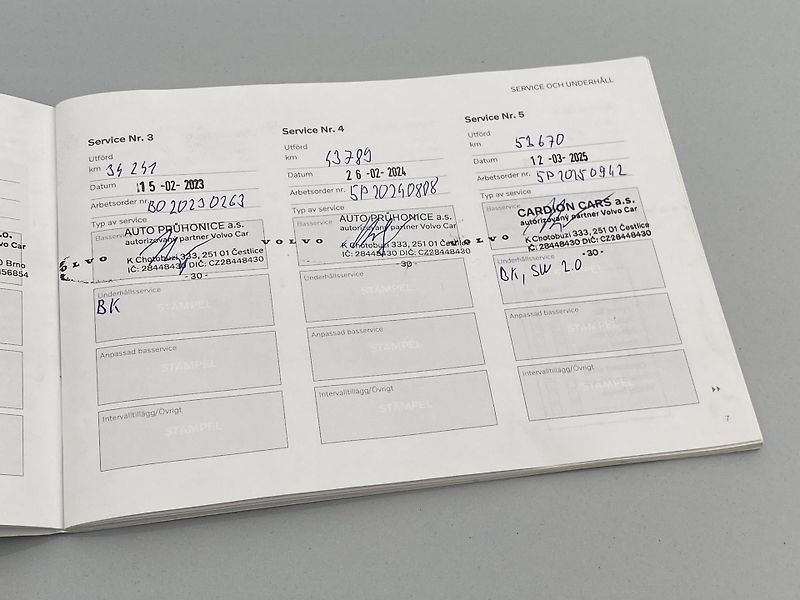 SERVICE OCH UNDERHÅLL
Service Nr. 3
Utförd
km 34 241
Datum 15 -02- 2023
Arbetsorder nr. BO20230263
Typ av service
Basservice
AUTO PRŮHONICE a.s.
autorizovaný partner Volvo Car
VOLVO
K Chotobuzi 333, 251 01 Čestlice
IČ: 28448430 DIČ: CZ28448430
- 30 -
Underhållsservice
BK
STÄMPEL
Anpassad basservice
STÄMPEL
Intervalltillägg/Övrigt
STÄMPEL
Service Nr. 4
Utförd
km 43789
Datum 26 -02- 2024
Arbetsorder nr. SP20240808
Typ av service
Basservice
AUTO PRŮHONICE a.s.
autorizovaný partner Volvo Car
VOLVO
K Chotobuzi 333, 251 01 Čestlice
IČ: 28448430 DIČ: CZ28448430
- 30 -
Underhållsservice
STÄMPEL
Anpassad basservice
STÄMPEL
Intervalltillägg/Övrigt
STÄMPEL
Service Nr. 5
Utförd
km 51670
Datum 12 -03- 2025
Arbetsorder nr. SP20250942
Typ av service
Basservice
CARDION CARS a.s.
autorizovaný partner Volvo Car
VOLVO
K Chotobuzi 333, 251 01 Čestlice
IČ: 28448430 DIČ: CZ28448430
- 30 -
Underhållsservice
BK, SW 2.0
Anpassad basservice
STÄMPEL
Intervalltillägg/Övrigt
STÄMPEL
7
.o.
vo Car
0 Brno
656854